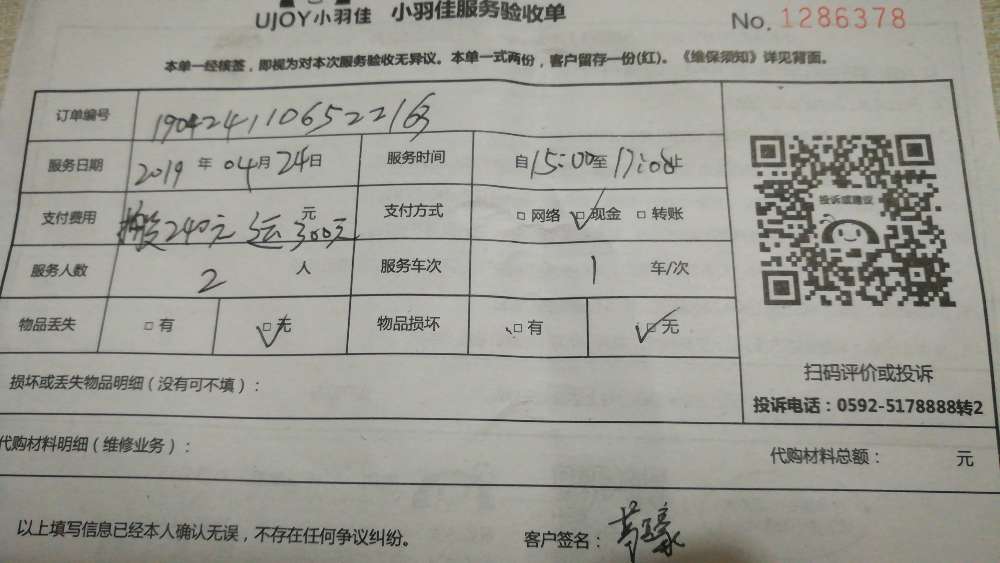 UJOY小羽佳 小羽佳服务验收单 No. 1286378
本单一经核签，即视为对本次服务验收无异议。本单一式两份，客户留存一份(红)。《维保须知》详见背面。
订单编号 1904241106522163
服务日期 2019 年 04月 24日 服务时间 自15:00至17:08止
支付费用 搬240元 运300元 元 支付方式 □ 网络 □ 现金 □ 转账
服务人数 2 人 服务车次 1 车/次
物品丢失 □ 有 □ 无 物品损坏 □ 有 □ 无
投诉或建议
扫码评价或投诉
投诉电话：0592-5178888转2
损坏或丢失物品明细（没有可不填）：
代购材料明细（维修业务）： 代购材料总额： 元
以上填写信息已经本人确认无误，不存在任何争议纠纷。 客户签名：